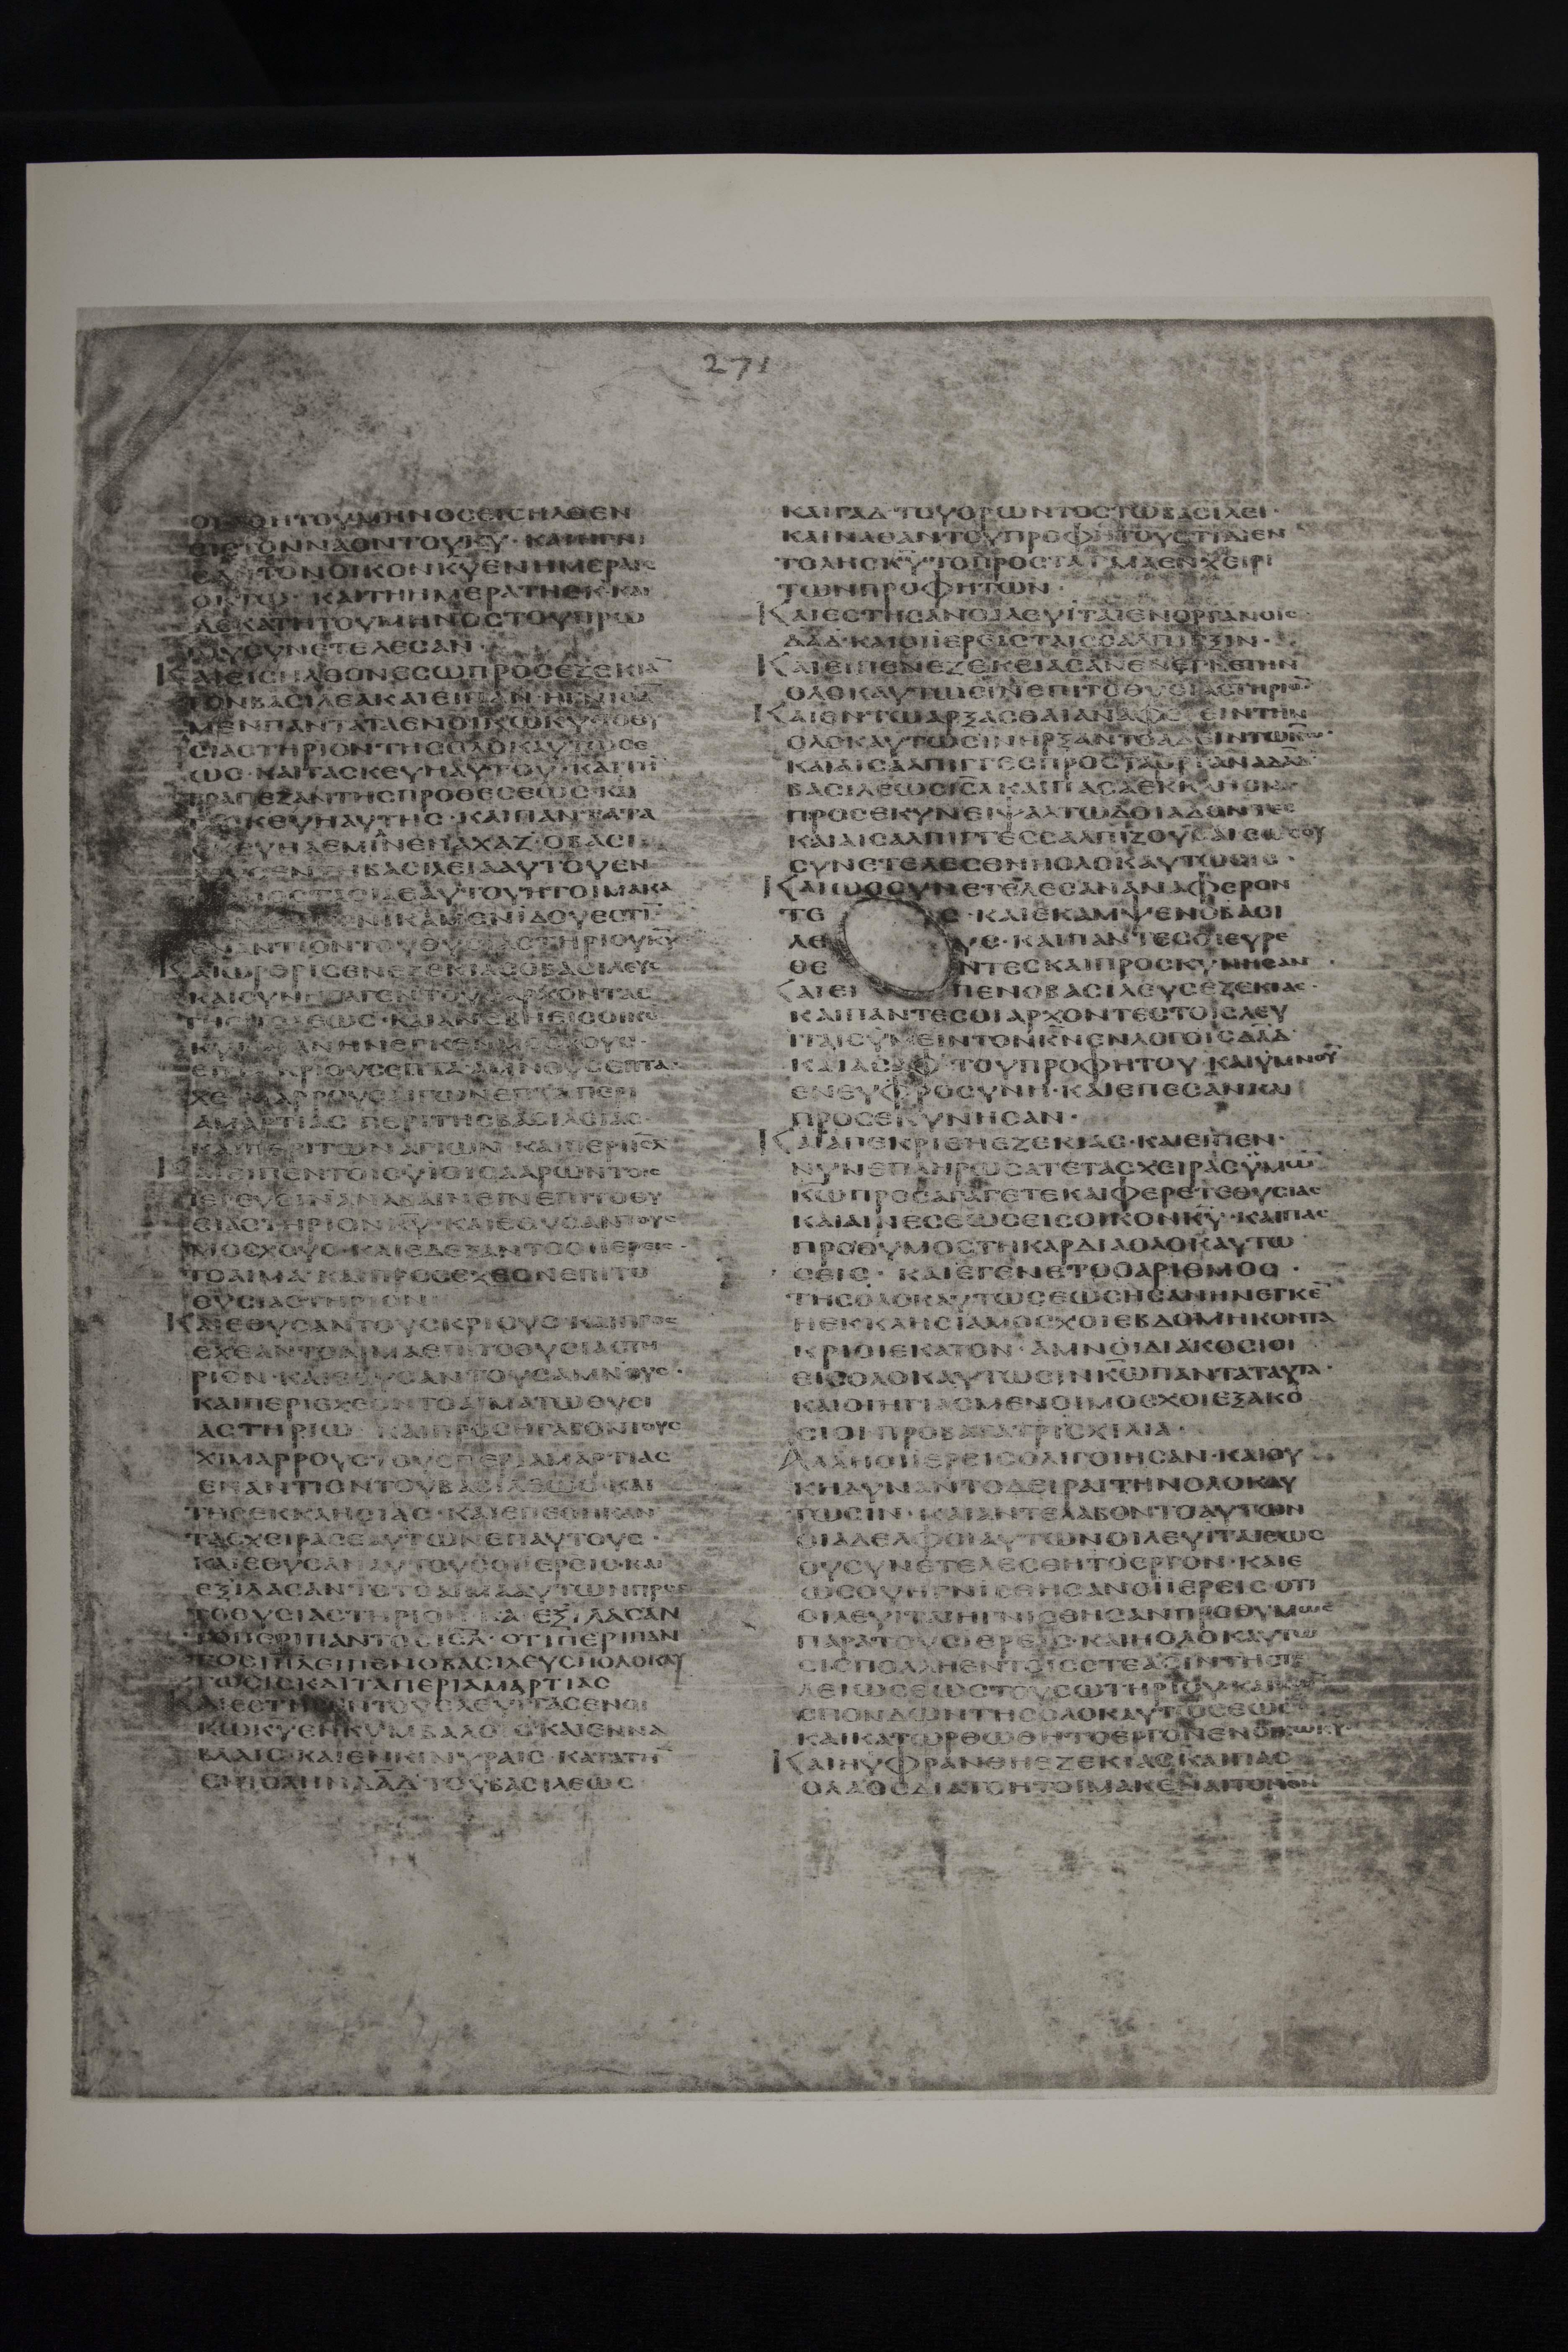 271
ΕΙϹΤΟΝΝΑΟΝΤΟΥΚΥ · ΚΑΙΗΓΝΙ
ΤΟΝΟΙΚΟΝΚΥΕΝΗΜΕΡΑΙϹ
ΟΚΤΩ · ΚΑΙΤΗΗΜΕΡΑΤΗΕΚΚΑΙ
ΔΕΚΑΤΗΤΟΥΜΗΝΟϹΤΟΥΠΡΩ
ΤΟΥϹΥΝΕΤΕΛΕϹΑΝ ·
ΚΑΙΕΙϹΗΛΘΟΝΕϹΩΠΡΟϹΕΖΕΚΙΑ̅
ΤΟΝΒΑϹΙΛΕΑΚΑΙΕΙΠΑΝ
ΜΕΝΠΑΝΤΑΤΑΕΝΟΙΚΩΚΥ·ΤΟΘΥ
ϹΙΑϹΤΗΡΙΟΝΤΗϹΟΛΟΚΑΥΤΩϹΕ
ΩϹ · ΚΑΙΤΑϹΚΕΥΗΑΥΤΟΥ · ΚΑΙΤΗ̅
ΤΡΑΠΕΖΑΝΤΗϹΠΡΟΘΕϹΕΩϹ·ΚΑΙ
ΤΑϹΚΕΥΗΑΥΤΗϹ · ΚΑΙΠΑΝΤΑΤΑ
ΕΝΑΝΤΙΟΝΤΟΥΘΥϹΙΑϹΤΗΡΙΟΥΚΥ
ΚΑΙΩΡΘΡΙϹΕΝΕΖΕΚΙΑϹΟΒΑϹΙΛΕΥϹ
ΚΑΙϹΥΝΗΓΑΓΕΝΤΟΥϹΑΡΧΟΝΤΑϹ
ΤΗϹΠΟΛΕΩϹ · ΚΑΙΑΝΕΒΗΕΙϹΟΙΚΟ̅
ΑΜΑΡΤΙΑϹ ΠΕΡΙΤΗϹΒΑϹΙΛΕΙΑϹ
ΚΑΙΠΕΡΙΤΩΝΑΓΙΩΝ ΚΑΙΠΕΡΙΙϹΛ
ΚΑΙΕΙΠΕΝΤΟΙϹΥΙΟΙϹΑΑΡΩΝΤΟΙϹ
ΙΕΡΕΥϹΙΝΑΝΑΒΑΙΝΕΙΝΕΠΙΤΟΘΥ
ϹΙΑϹΤΗΡΙΟΝΚΥ · ΚΑΙΕΘΥϹΑΝΤΟΥϹ
ΜΟϹΧΟΥϹ · ΚΑΙΕΔΕΞΑΝΤΟΟΙΙΕΡΕΙϹ ·
ΤΟΑΙΜΑ ΚΑΙΠΡΟϹΕΧΕΟΝΕΠΙΤΟ
ΘΥϹΙΑϹΤΗΡΙΟΝ
ΚΑΙΕΘΥϹΑΝΤΟΥϹΚΡΙΟΥϹ·ΚΑΙΠΡΟϹ
ΕΧΕΑΝΤΟΑΙΜΑΕΠΙΤΟΘΥϹΙΑϹΤΗ
ΡΙΟΝ · ΚΑΙΕΘΥϹΑΝΤΟΥϹΑΜΝΟΥϹ ·
ΚΑΙΠΕΡΙΕΧΕΟΝΤΟΑΙΜΑΤΩΘΥϹΙ
ΑϹΤΗΡΙΩ ΚΑΙΠΡΟϹΗΓΑΓΟΝΤΟΥϹ
ΧΙΜΑΡΡΟΥϹΤΟΥϹΠΕΡΙΑΜΑΡΤΙΑϹ
ΕΝΑΝΤΙΟΝΤΟΥΒΑϹΙΛΕΩϹ·ΚΑΙ
ΤΗϹΕΚΚΛΗϹΙΑϹ · ΚΑΙΕΠΕΘΗΚΑΝ
ΤΑϹΧΕΙΡΑϹΕΑΥΤΩΝΕΠΑΥΤΟΥϹ ·
ΚΑΙΕΘΥϹΑΝΑΥΤΟΥϹΟΙΙΕΡΕΙϹ·ΚΑΙ
ΕΞΙΛΑϹΑΝΤΟΤΟΑΙΜΑΑΥΤΩΝΠΡΟϹ
ΤΟΘΥϹΙΑϹΤΗΡΙΟΝ ΚΑΙΕΞΙΛΑϹΑΝ
ΤΟΠΕΡΙΠΑΝΤΟϹΙϹΛ · ΟΤΙΠΕΡΙΠΑΝ
ΤΟϹΙΗΛΕΙΠΕΝΟΒΑϹΙΛΕΥϹΗΟΛΟΚΑΥ
ΤΩϹΙϹΚΑΙΤΑΠΕΡΙΑΜΑΡΤΙΑϹ
ΚΑΙΕϹΤΗϹΕΝΤΟΥϹΛΕΥΙΤΑϹΕΝΟΙ
ΚΩΚΥΕΝΚΥΜΒΑΛΟΙϹ·ΚΑΙΕΝΝΑ
ΒΛΑΙϹ·ΚΑΙΕΝΚΙΝΥΡΑΙϹ·ΚΑΤΑΤΗ̅
ΕΝΤΟΛΗΝΔΑΔ ΤΟΥΒΑϹΙΛΕΩϹ
ΚΑΙΓΑΔ·ΤΟΥΟΡΩΝΤΟϹΤΩΒΑϹΙΛΕΙ ·
ΚΑΙΝΑΘΑΝΤΟΥΠΡΟΦΗΤΟΥΟΤΙΔΙΕΝ
ΤΟΛΗϹΚΥ ΤΟΠΡΟϹΤΑΓΜΑΕΝΧΕΙΡΙ
ΤΩΝΠΡΟΦΗΤΩΝ ·
ΚΑΙΕϹΤΗϹΑΝΟΙΛΕΥΙΤΑΙΕΝΟΡΓΑΝΟΙϹ
ΔΑΔ·ΚΑΙΟΙΙΕΡΕΙϹΤΑΙϹϹΑΛΠΙΓΞΙΝ ·
ΚΑΙΕΙΠΕΝΕΖΕΚΕΙΑϹΑΝΕΝΕΓΚΕΤΗΝ
ΟΛΟΚΑΥΤΩϹΙΝΕΠΙΤΟΘΥϹΙΑϹΤΗΡΙΟ̅
ΚΑΙΕΝΤΩΑΡΞΑϹΘΑΙΑΝΑΦΕΡΕΙΝΤΗΝ
ΟΛΟΚΑΥΤΩϹΙΝΗΡΞΑΝΤΟΑΔΕΙΝΤΩΚΩ ·
ΚΑΙΑΙϹΑΛΠΙΓΓΕϹΠΡΟϹΤΑΟΡΓΑΝΑΔΑΔ
ΒΑϹΙΛΕΩϹΙϹΛΚΑΙΠΑϹΑΕΚΚΛΗϹΙΑ
ΠΡΟϹΕΚΥΝΕΙΨΑΛΤΩΔΟΙΑΔΟΝΤΕϹ
ΚΑΙΑΙϹΑΛΠΙΓΓΕϹϹΑΛΠΙΖΟΥϹΑΙΕΩϹΟΥ
ϹΥΝΕΤΕΛΕϹΘΗΗΟΛΟΚΑΥΤΩϹΙϹ ·
ΚΑΙΩϹϹΥΝΕΤΕΛΕϹΑΝΑΝΑΦΕΡΟΝ
ΤΕϹ · ΚΑΙΕΚΑΜΨΕΝΟΒΑϹΙ
ΛΕΥϹ·ΚΑΙΠΑΝΤΕϹΟΙΕΥΡΕ
ΘΕΝΤΕϹΚΑΙΠΡΟϹΚΥΝΗϹΑΝ ·
ΚΑΙΕΙΠΕΝΟΒΑϹΙΛΕΥϹΕΖΕΚΙΑϹ ·
ΚΑΙΠΑΝΤΕϹΟΙΑΡΧΟΝΤΕϹΤΟΙϹΛΕΥ
ΙΤΑΙϹΥΜΕΙΝΤΟΝΚΝΕΝΛΟΓΟΙϹΔΑΔ
ΚΑΙΑϹΑΦ ΤΟΥΠΡΟΦΗΤΟΥ·ΚΑΙΥΜΝΟΥ̅
ΕΝΕΥΦΡΟϹΥΝΗ·ΚΑΙΕΠΕϹΑΝΚΑΙ
ΠΡΟϹΕΚΥΝΗϹΑΝ ·
ΚΑΙΑΠΕΚΡΙΘΗΕΖΕΚΙΑϹ·ΚΑΙΕΙΠΕΝ ·
ΝΥΝΕΠΛΗΡΩϹΑΤΕΤΑϹΧΕΙΡΑϹΫΜΩ̅
ΚΩΠΡΟϹΑΓΑΓΕΤΕΚΑΙΦΕΡΕΤΕΘΥϹΙΑϹ
ΚΑΙΑΙΝΕϹΕΩϹΕΙϹΟΙΚΟΝΚΥ·ΚΑΙΠΑϹ
ΠΡΟΘΥΜΟϹΤΗΚΑΡΔΙΑΟΛΟΚΑΥΤΩ
ϹΕΙϹ · ΚΑΙΕΓΕΝΕΤΟΟΑΡΙΘΜΟϹ ·
ΤΗϹΟΛΟΚΑΥΤΩϹΕΩϹΗϹΑΝΗΝΕΓΚΕ̅
ΗΕΚΚΛΗϹΙΑΜΟϹΧΟΙΕΒΔΟΜΗΚΟΝΤΑ
ΚΡΙΟΙΕΚΑΤΟΝ · ΑΜΝΟΙΔΙΑΚΟϹΙΟΙ
ΕΙϹΟΛΟΚΑΥΤΩϹΙΝΚΩΠΑΝΤΑΤΑΥΤΑ ·
ΚΑΙΟΙΗΓΙΑϹΜΕΝΟΙΜΟϹΧΟΙΕΞΑΚΟ
ϹΙΟΙ·ΠΡΟΒΑΤΑΤΡΙϹΧΙΛΙΑ ·
ΑΛΛΗΟΙΙΕΡΕΙϹΟΛΙΓΟΙΗϹΑΝ·ΚΑΙΟΥ
ΚΗΔΥΝΑΝΤΟΔΕΙΡΑΙΤΗΝΟΛΟΚΑΥ
ΤΩϹΙΝ · ΚΑΙΑΝΤΕΛΑΒΟΝΤΟΑΥΤΩΝ
ΟΙΑΔΕΛΦΟΙΑΥΤΩΝΟΙΛΕΥΙΤΑΙΕΩϹ
ΟΥϹΥΝΕΤΕΛΕϹΘΗΤΟΕΡΓΟΝ·ΚΑΙΕ
ΩϹΟΥΗΓΝΙϹΘΗϹΑΝΟΙΙΕΡΕΙϹ·ΟΤΙ
ΟΙΛΕΥΙΤΑΙΗΓΝΙϹΘΗϹΑΝΠΡΟΘΥΜΩϹ
ΠΑΡΑΤΟΥϹΙΕΡΕΙϹ·ΚΑΙΗΟΛΟΚΑΥΤΩ
ϹΙϹΠΟΛΛΗΕΝΤΟΙϹϹΤΕΑϹΙΝΤΗϹΤΕ
ΛΕΙΩϹΕΩϹΤΟΥϹΩΤΗΡΙΟΥ·ΚΑΙ
ϹΠΟΝΔΩΝΤΗϹΟΛΟΚΑΥΤΩϹΕΩϹ
ΚΑΙΚΑΤΩΡΘΩΘΗΤΟΕΡΓΟΝΕΝΟΙΚΩΚΥ ·
ΚΑΙΗΥΦΡΑΝΘΗΕΖΕΚΙΑϹΚΑΙΠΑϹ
ΟΛΑΟϹΔΙΑΤΟΗΤΟΙΜΑΚΕΝΑΙΤΟΝΘΝ